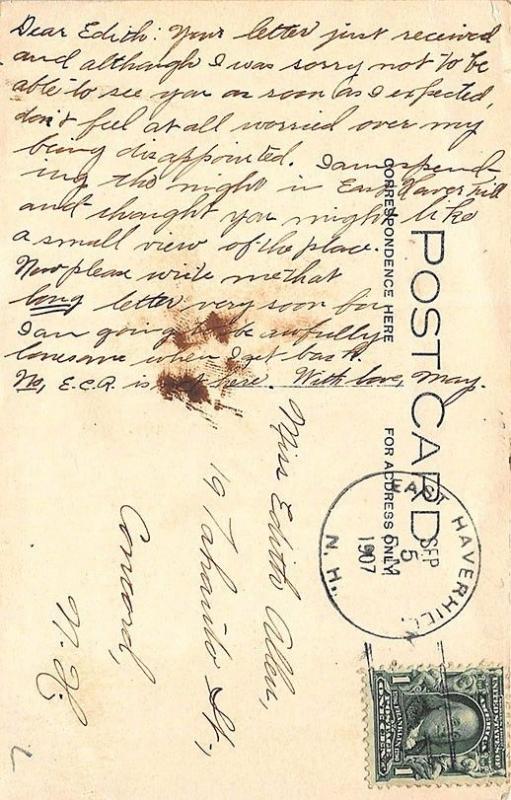 Dear Edith: Your letter just received
and although I was sorry not to be
able to see you as soon as I expected,
don't feel at all worried over my
being disappointed. I am spend-
ing the night in East Haverhill
and thought you might like
a small view of the place.
Now please write me that
long letter very soon for
I am going to be awfully
lonesome when I get back.
No, E.C.R. is not here. With love, May.
POST CARD
CORRESPONDENCE HERE
FOR ADDRESS ONLY
EAST HAVERHILL,
SEP
5
1907
N.H.
Miss Edith Allen,
19 Tahanto St.,
Concord,
N.H.
UNITED STATES OF AMERICA
FRANKLIN
POSTAGE
ONE CENT
1 1